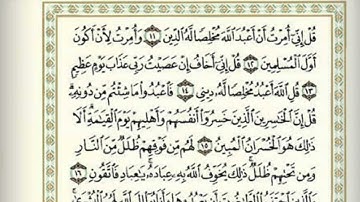 قُلْ إِنِّىٓ أُمِرْتُ أَنْ أَعْبُدَ ٱللَّهَ مُخْلِصًا لَّهُ ٱلدِّينَ ١١ وَأُمِرْتُ لِأَنْ أَكُونَ
أَوَّلَ ٱلْمُسْلِمِينَ ١٢ قُلْ إِنِّىٓ أَخَافُ إِنْ عَصَيْتُ رَبِّى عَذَابَ يَوْمٍ عَظِيمٍ
١٣ قُلِ ٱللَّهَ أَعْبُدُ مُخْلِصًا لَّهُۥ دِينِى ١٤ فَٱعْبُدُوا۟ مَا شِئْتُم مِّن دُونِهِۦ
قُلْ إِنَّ ٱلْخَـٰسِرِينَ ٱلَّذِينَ خَسِرُوٓا۟ أَنفُسَهُمْ وَأَهْلِيهِمْ يَوْمَ ٱلْقِيَـٰمَةِ أَلَا
ذَٰلِكَ هُوَ ٱلْخُسْرَانُ ٱلْمُبِينُ ١٥ لَهُم مِّن فَوْقِهِمْ ظُلَلٌ مِّنَ ٱلنَّارِ
وَمِن تَحْتِهِمْ ظُلَلٌ ذَٰلِكَ يُخَوِّفُ ٱللَّهُ بِهِۦ عِبَادَهُۥ يَـٰعِبَادِ فَٱتَّقُونِ ١٦